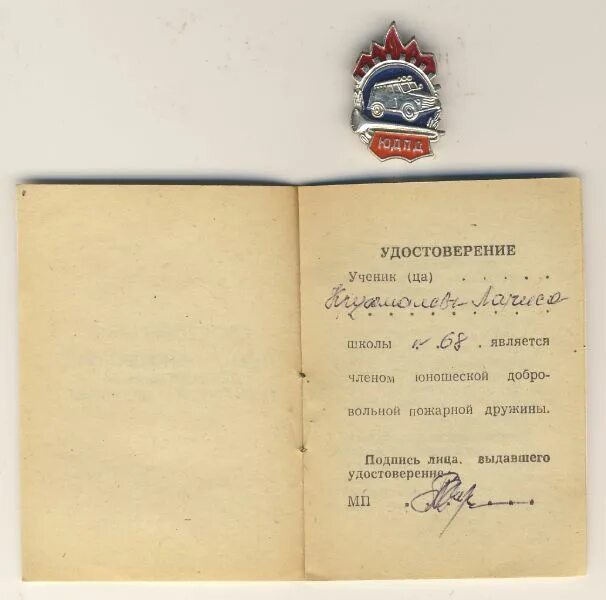 ЮДПД
УДОСТОВЕРЕНИЕ
Ученик (ца) . . . . .
Лариса
школы № 68 . является
членом юношеской добро-
вольной пожарной дружины.
Подпись лица, выдавшего
удостоверение
МП